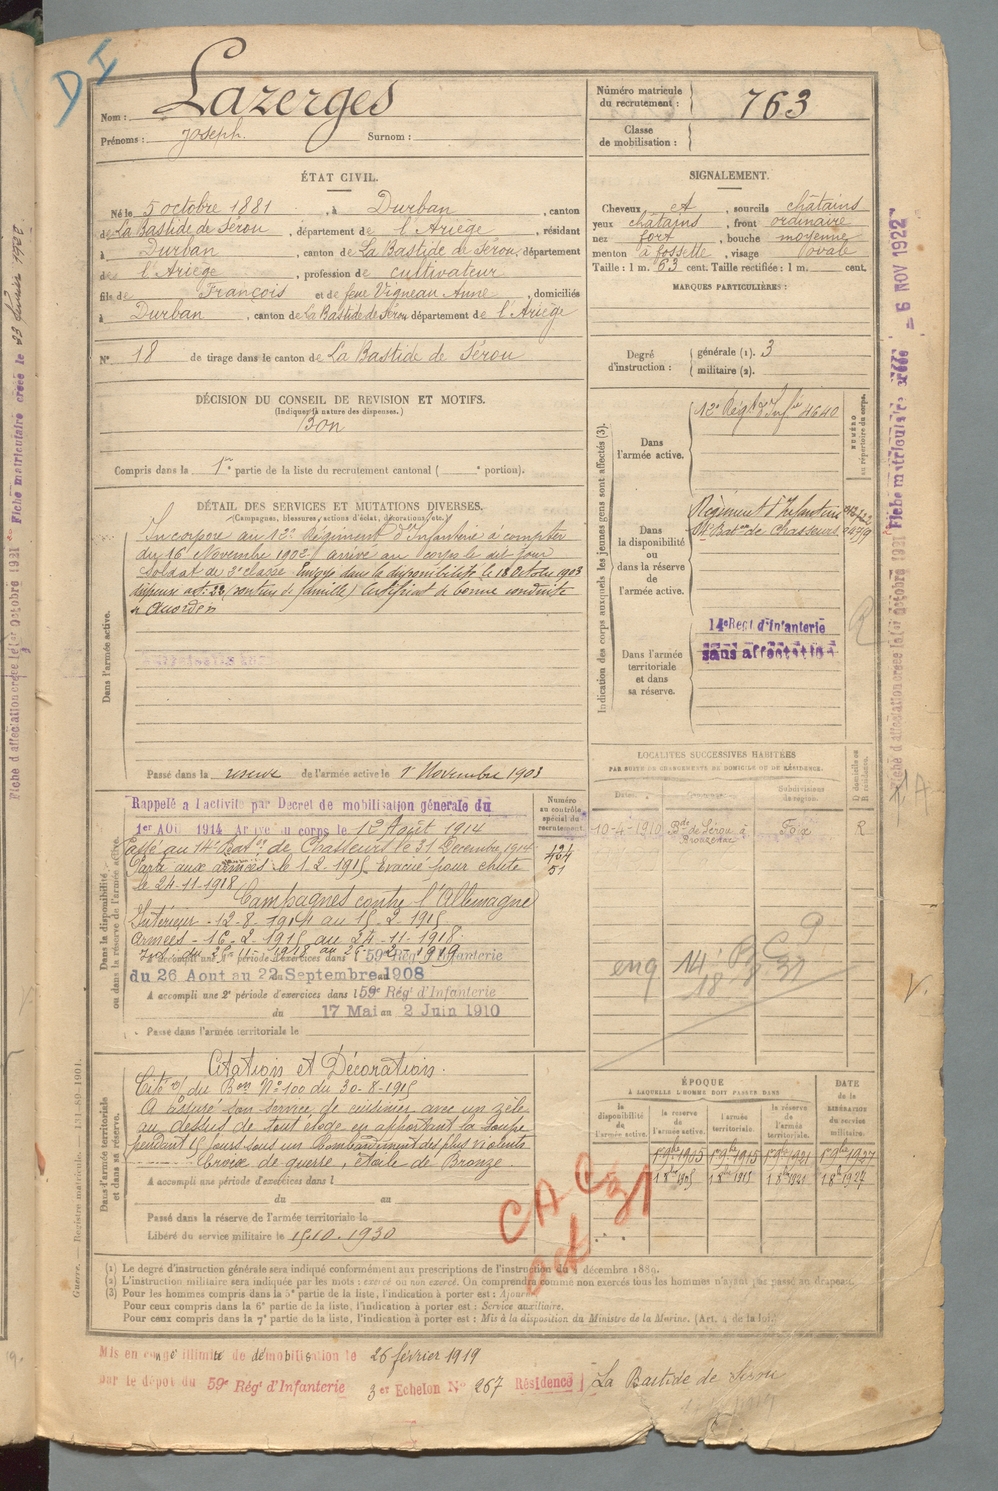 DI
Nom : Lazerges
Prénoms : Joseph. Surnom :
Numéro matricule du recrutement : 763
Classe de mobilisation :
ÉTAT CIVIL.
Né le 5 octobre 1881, à Durban, canton
de La Bastide de Sérou, département de l'Ariège, résidant
à Durban, canton de La Bastide de Sérou, département
de l'Ariège, profession de cultivateur
fils de François et de feue Vigneau Anne, domiciliés
à Durban, canton de La Bastide de Sérou département de l'Ariège
N° 18 de tirage dans le canton de La Bastide de Sérou
SIGNALEMENT.
Cheveux et, sourcils châtains
yeux châtains, front ordinaire
nez fort, bouche moyenne
menton à fossette, visage ovale
Taille : 1 m. 63 cent. Taille rectifiée : 1 m. cent.
MARQUES PARTICULIÈRES :
Degré d'instruction : générale (1). 3
militaire (2).
DÉCISION DU CONSEIL DE REVISION ET MOTIFS.
(Indiquer la nature des dispenses.)
Bon
Compris dans la 1re partie de la liste du recrutement cantonal ( e portion).
DÉTAIL DES SERVICES ET MUTATIONS DIVERSES.
(Campagnes, blessures, actions d'éclat, décorations, etc.)
Dans l'armée active.
Incorporé au 12e Régiment d'Infanterie à compter
du 16 Novembre 1902 arrivé au corps le dit jour
Soldat de 2e classe Envoyé dans la disponibilité le 18 Octobre 1903
dispensé art. 22 (soutien de famille) Certificat de bonne conduite
Accordé
Passé dans la réserve de l'armée active le 1er Novembre 1903
Indication des corps auxquels les jeunes gens sont affectés (3).
NUMÉRO au répertoire du corps.
Dans l'armée active.
12e Régt d'Infie 4640
Dans la disponibilité ou dans la réserve de l'armée active.
Régiment d'Infanterie
14e Baton de Chasseurs
Dans l'armée territoriale et dans sa réserve.
14e Regt d'Infanterie
sans affectation
R
Dans la disponibilité ou dans la réserve de l'armée active.
Rappelé à l'activité par Decret de mobilisation générale du
1er AOU 1914 Arrivé au corps le 12 Août 1914
Passé au 14e Baton de Chasseurs le 31 Décembre 1914
Parti aux armées le 1.2.1915 Evacué pour chute
le 24-11-1918
Campagnes contre l'Allemagne
Intérieur - 12-8-1914 au 15-2-1915
Armées - 16-2-1915 au 24-11-1918.
A accompli une 1re période d'exercices dans le 59e Rég' d'Infanterie
du 26 Aout au 22 Septembre 1908
A accompli une 2e période d'exercices dans l 59e Rég' d'Infanterie
du 17 Mai au 2 Juin 1910
Passé dans l'armée territoriale le
Numéro au contrôle spécial du recrutement.
LOCALITÉS SUCCESSIVES HABITÉES
PAR SUITE DE CHANGEMENTS DE DOMICILE OU DE RÉSIDENCE.
Dates. Communes. Subdivisions de région. D domicile ou R résidence.
10-4-1910 Bde de Sérou à Foix R
Brouzenac
eng. 14 B C 9
18 8 31
Dans l'armée territoriale et dans sa réserve.
Citation et Décoration.
Cité o/ du Bon N° 100 du 30-8-1915
A assuré son service de cuisinier avec un zèle
au dessus de tout éloge en apportant la soupe
pendant 15 jours sous un bombardement des plus violents
Croix de guerre, étoile de Bronze
A accompli une période d'exercices dans l
du au
Passé dans la réserve de l'armée territoriale le
Libéré du service militaire le 15.10.1930
ÉPOQUE
À LAQUELLE L'HOMME DOIT PASSER DANS
la disponibilité de l'armée active. la réserve de l'armée active. l'armée territoriale. la réserve de l'armée territoriale. DATE de la LIBÉRATION du service militaire.
1er 9bre 1905 1er 9bre 1915 1er 9bre 1921 1er 9bre 1927
1 8bre 1905 1 8bre 1915 1 8bre 1921 1 8bre 1927
CA C 31
(1) Le degré d'instruction générale sera indiqué conformément aux prescriptions de l'instruction du 4 décembre 1889.
(2) L'instruction militaire sera indiquée par les mots : exercé ou non exercé. On comprendra comme non exercés tous les hommes n'ayant pas passé au drapeau.
(3) Pour les hommes compris dans la 5e partie de la liste, l'indication à porter est : Ajourné.
Pour ceux compris dans la 6e partie de la liste, l'indication à porter est : Service auxiliaire.
Pour ceux compris dans la 7e partie de la liste, l'indication à porter est : Mis à la disposition du Ministre de la Marine. (Art. 4 de la loi.)
Mis en congé illimité de démobilisation le 26 février 1919
par le dépôt du 59e Rég' d'Infanterie 3er Echelon N° 267 Résidence La Bastide de Sérou
Guerre. — Registre matricule. — 131-59-1901.
Fiche d'affectation créée le 1er Octobre 1921 Fiche matriculaire créée le - 6 NOV 1922
Fiche d'affectation créée le 1er Octobre 1921 Fiche matriculaire créée le 23 février